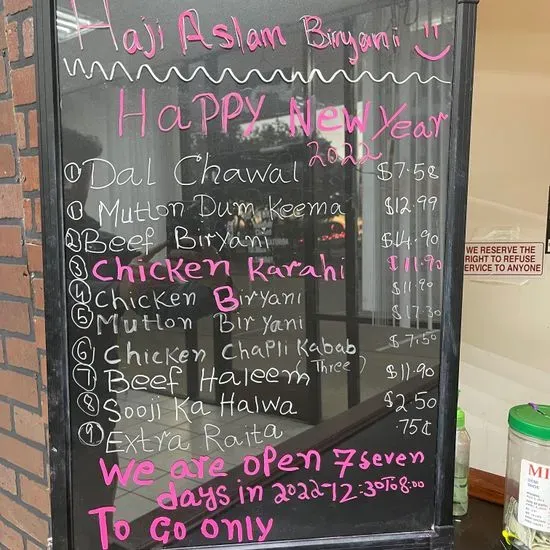 Haji Aslam Biryani
Happy New Year
2022
① Dal Chawal $7.58
① Mutton Dum Keema $12.99
② Beef Biryani $14.90
③ Chicken Karahi $11.90
④ Chicken Biryani $11.90
⑤ Mutton Biryani $17.30
⑥ Chicken Chapli Kabab $7.50
(Three)
⑦ Beef Haleem $11.90
⑧ Sooji Ka Halwa $2.50
⑨ Extra Raita .75¢
We are open 7 seven
days in 2022-12:30To8:00
To Go only
WE RESERVE THE
RIGHT TO REFUSE
SERVICE TO ANYONE
MI